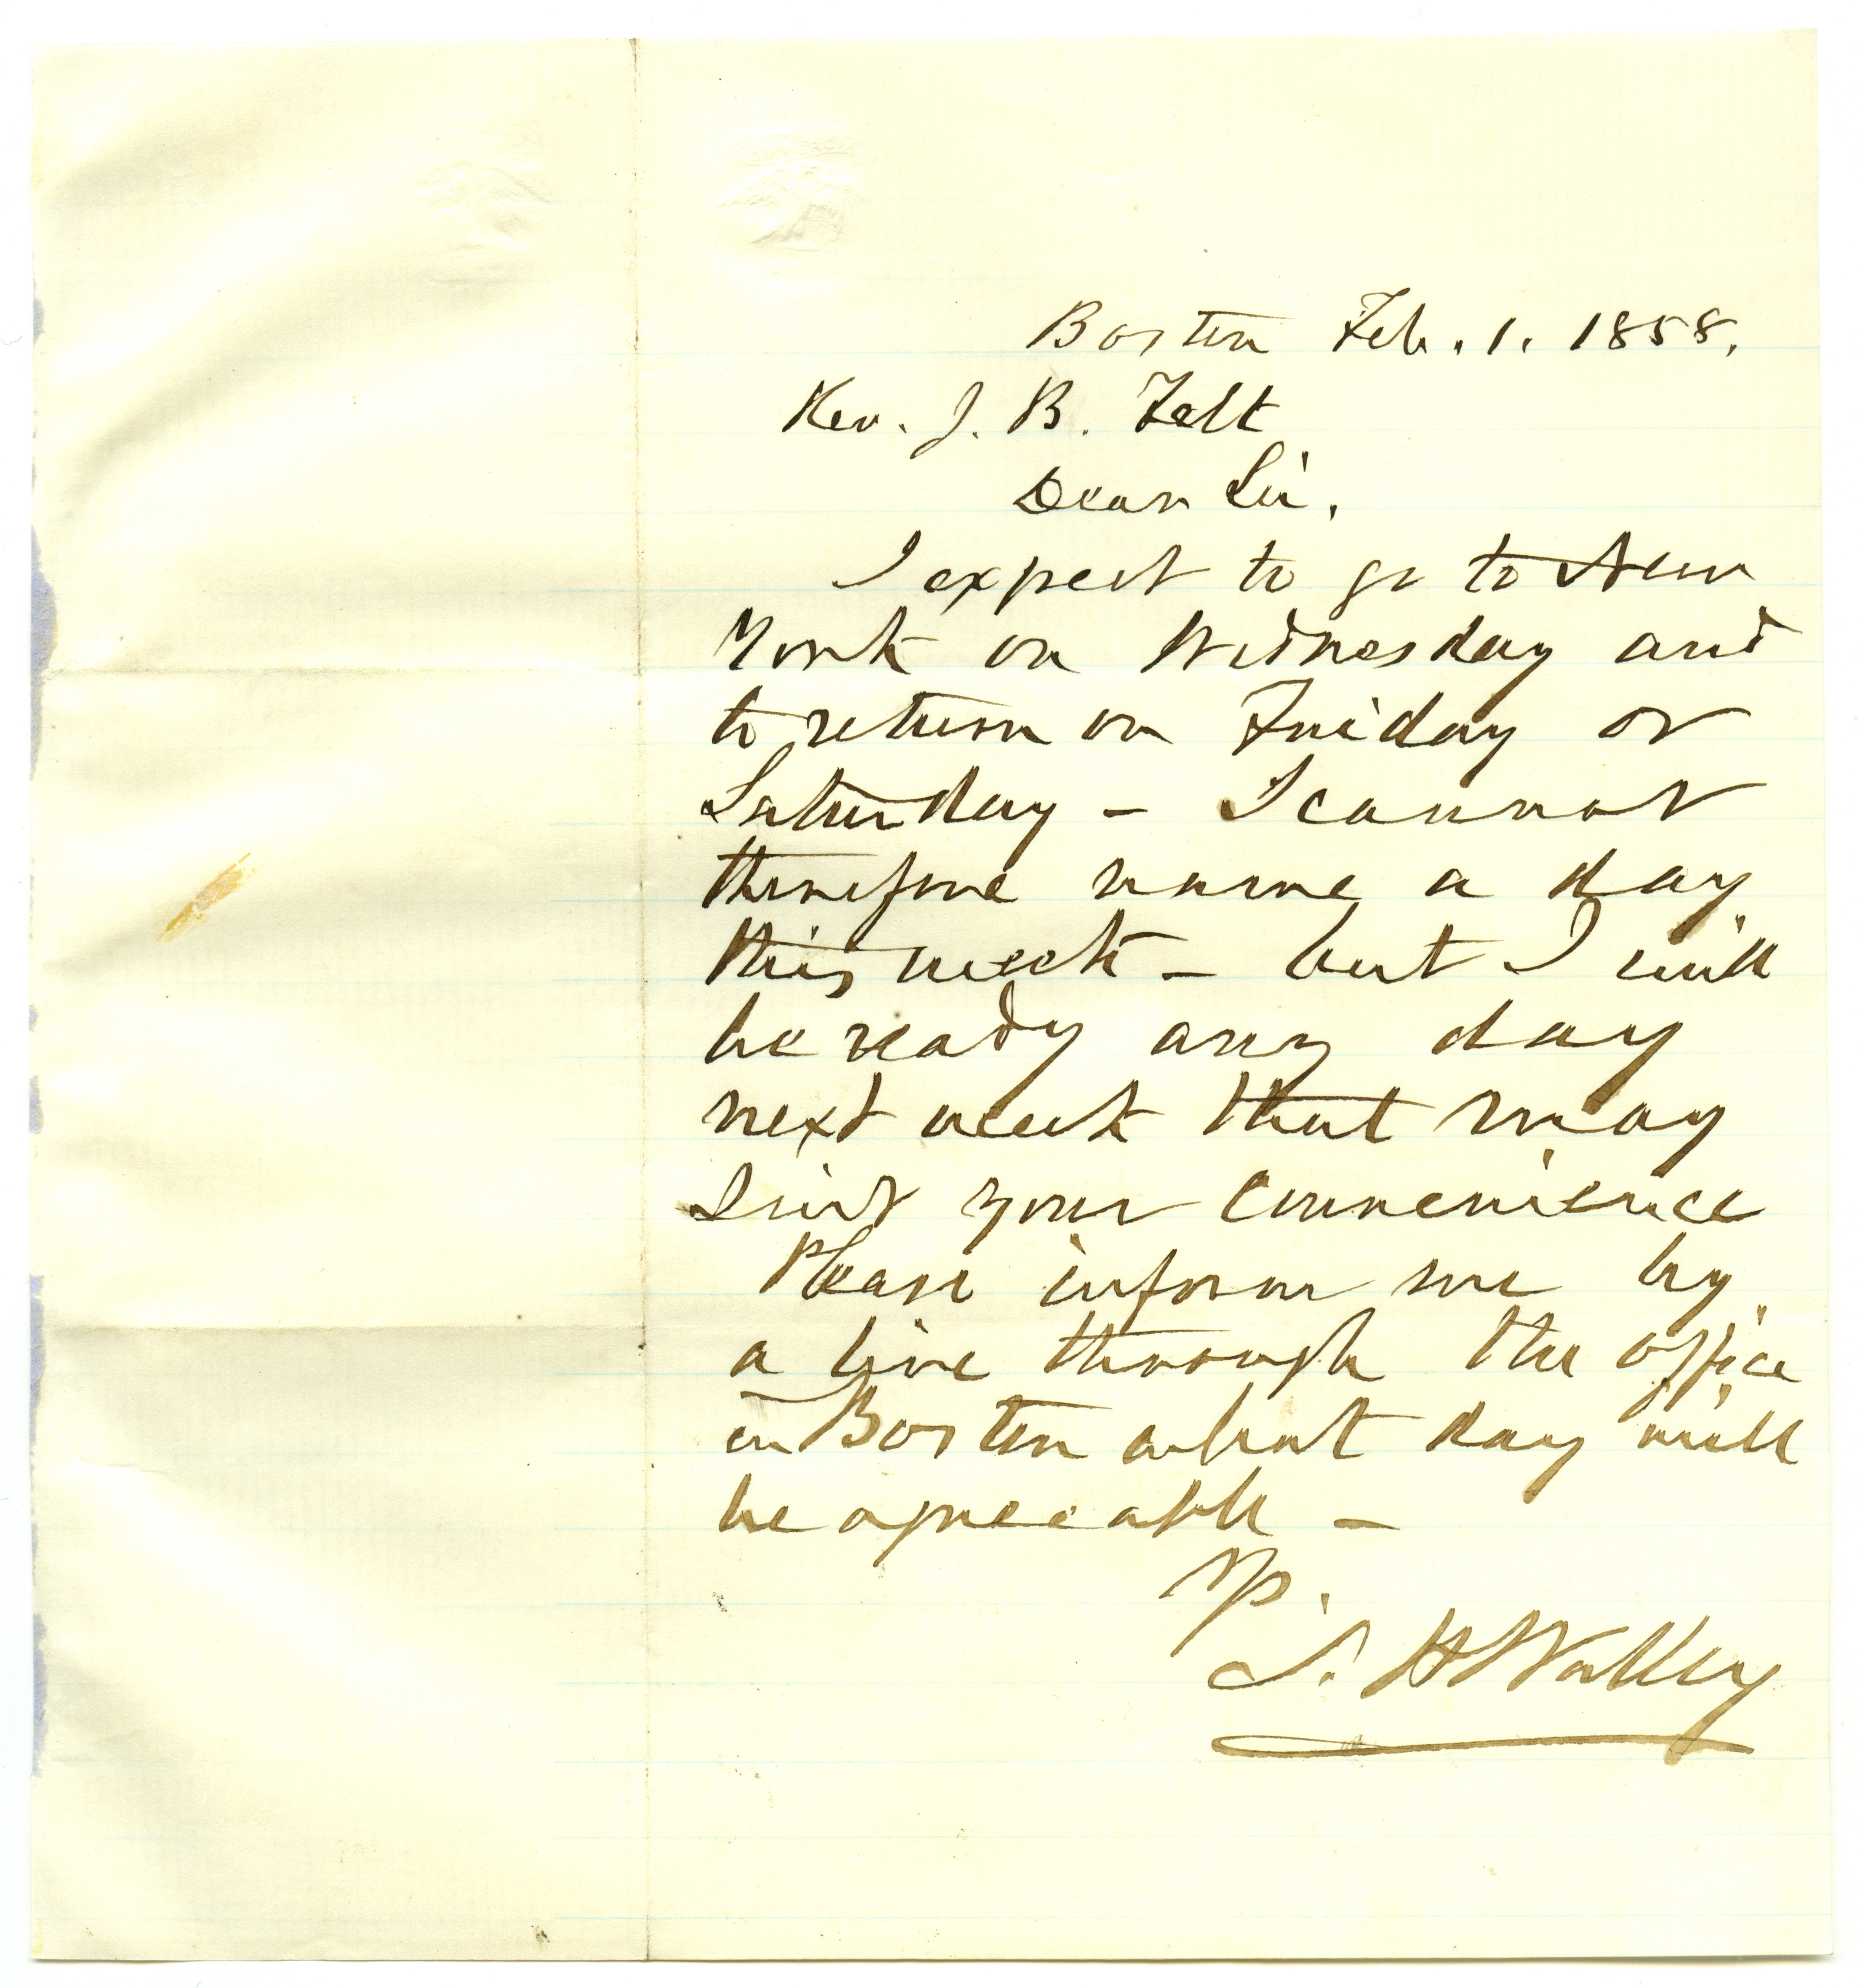 Boston Feb. 1. 1858.
Rev. J. B. Felt
Dear Sir,
I expect to go to New
York on Wednesday and
to return on Friday or
Saturday - I cannot
therefore name a day
this week - but I will
be ready any day
next week that may
suit your convenience
Please inform me by
a line through the office
in Boston what day will
be agreeable -
S. H Walley